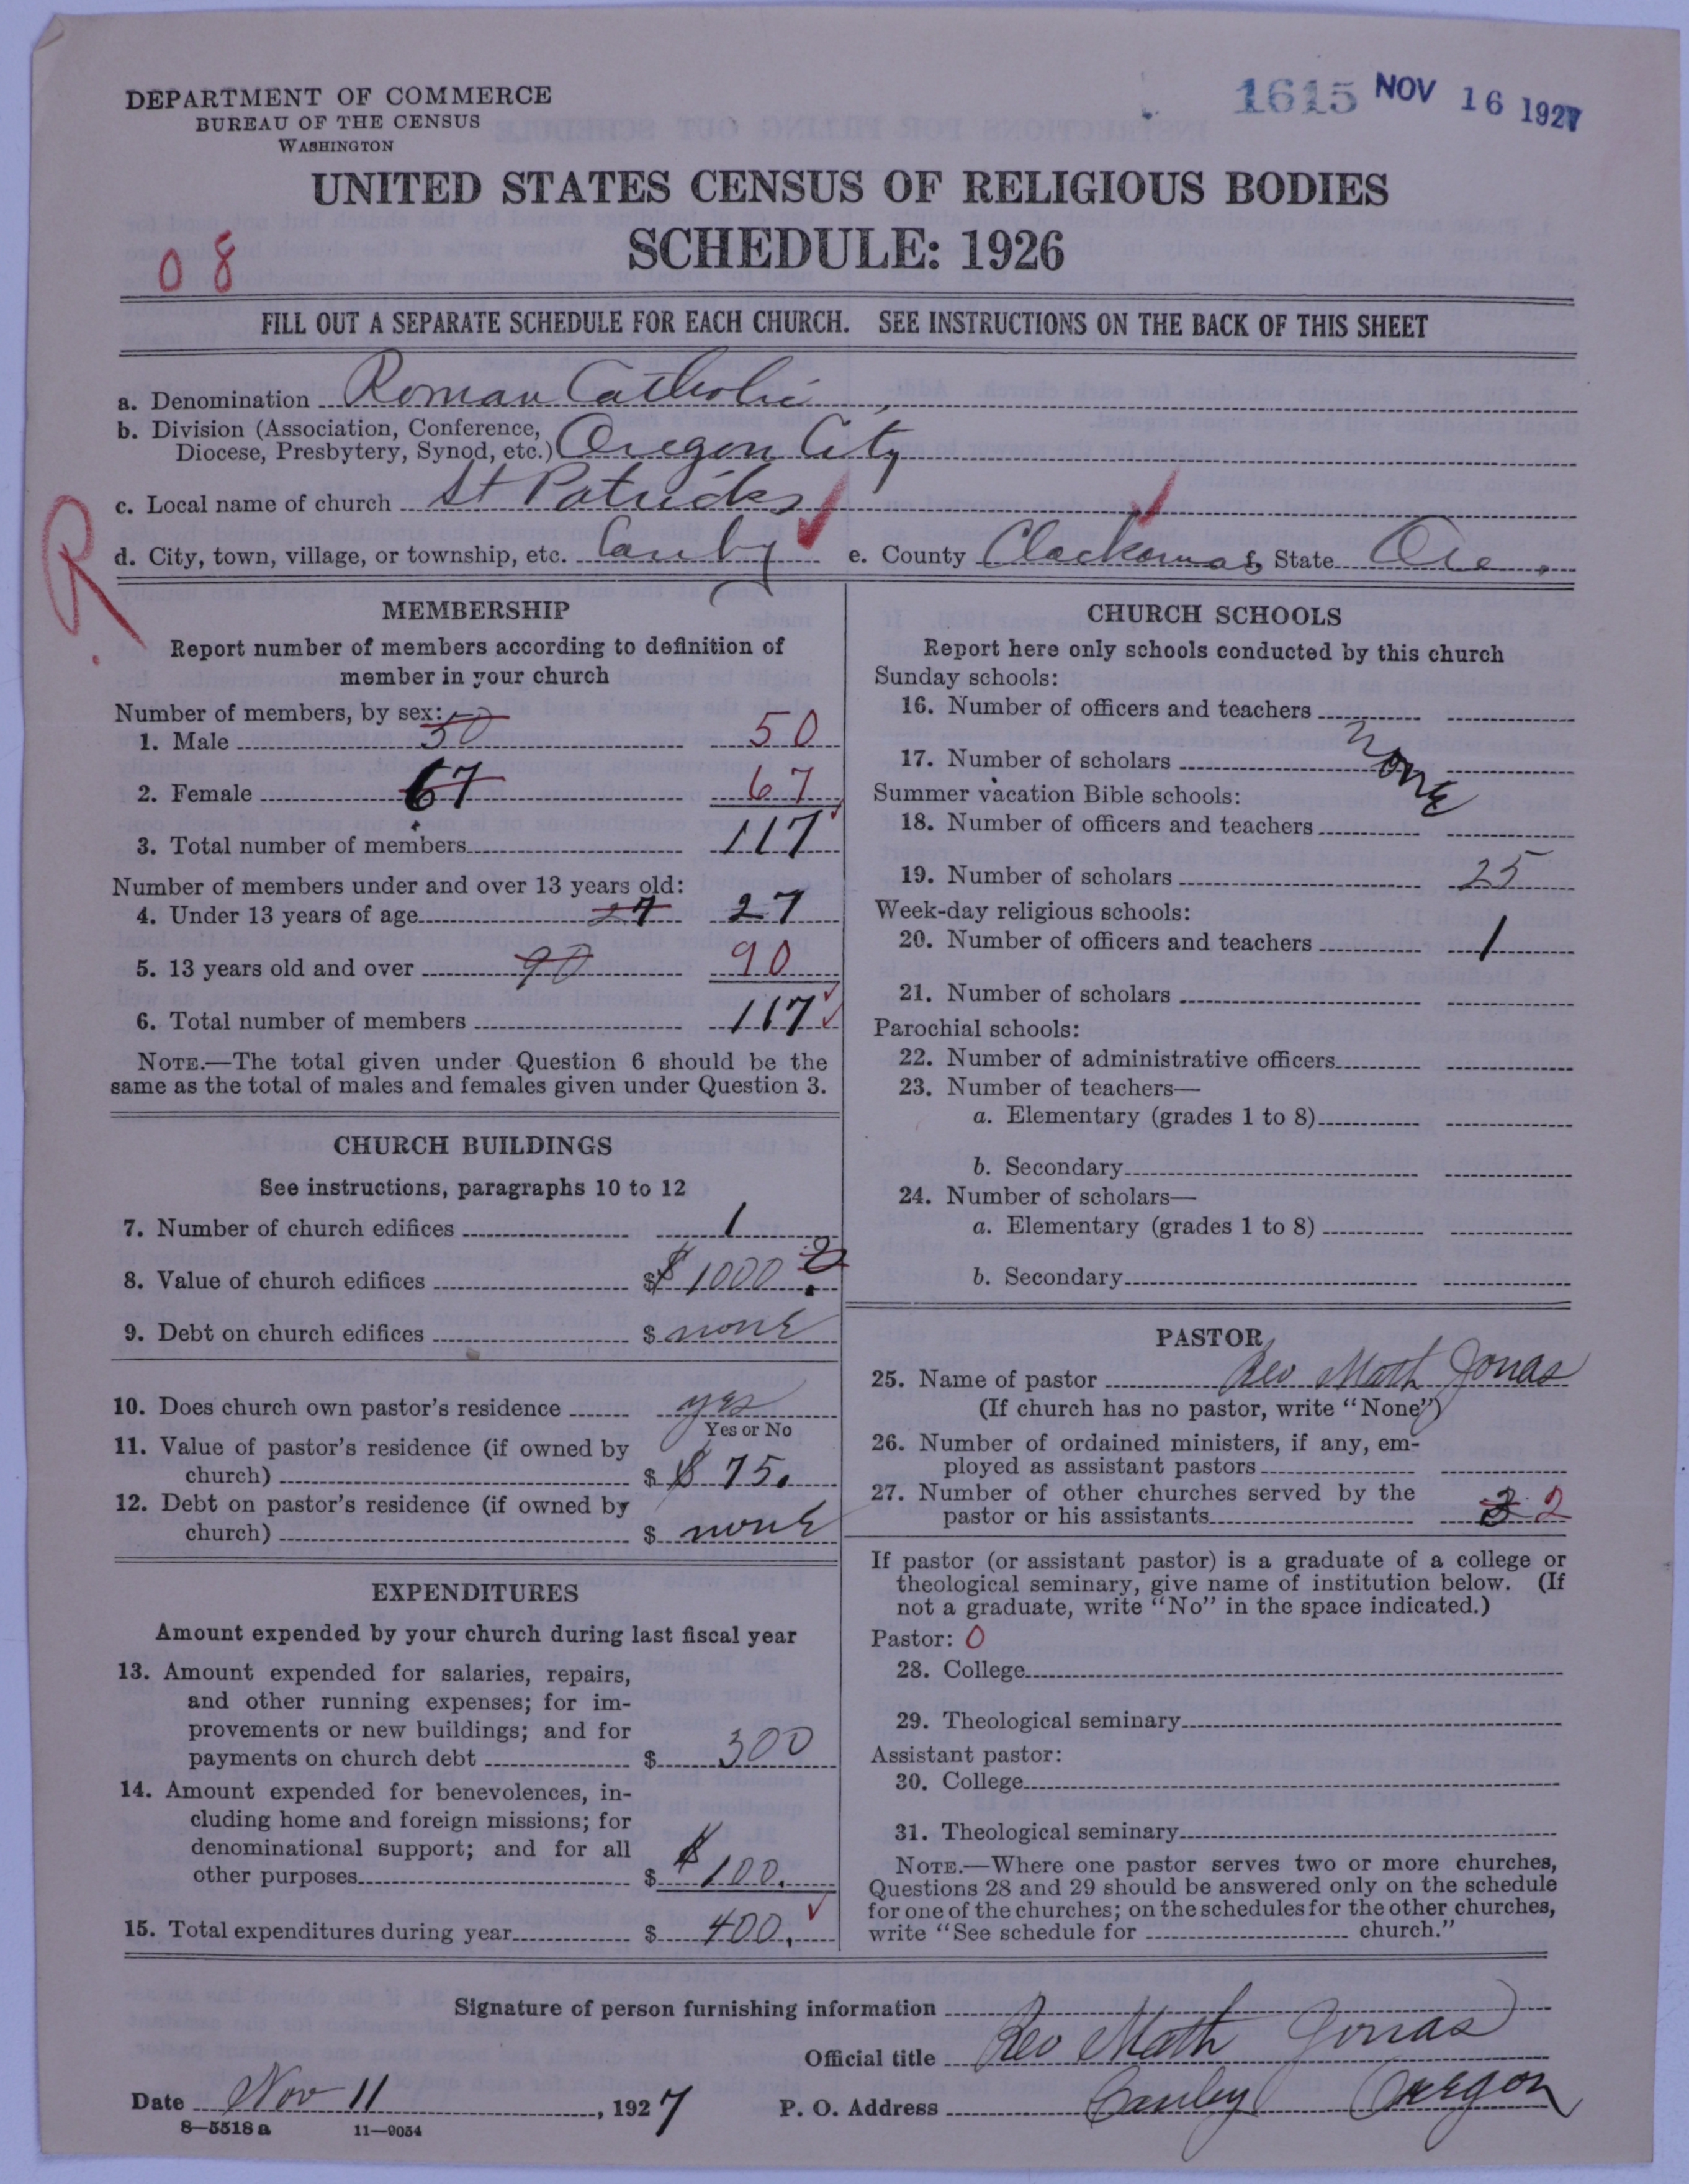 1615 NOV 16 1927
DEPARTMENT OF COMMERCE
BUREAU OF THE CENSUS
WASHINGTON
UNITED STATES CENSUS OF RELIGIOUS BODIES
SCHEDULE: 1926
08
FILL OUT A SEPARATE SCHEDULE FOR EACH CHURCH. SEE INSTRUCTIONS ON THE BACK OF THIS SHEET
a. Denomination Roman Catholic
b. Division (Association, Conference, Diocese, Presbytery, Synod, etc.) Oregon City
c. Local name of church St Patricks
R
d. City, town, village, or township, etc. Canby e. County Clackamas f. State Ore.
MEMBERSHIP
Report number of members according to definition of
member in your church
Number of members, by sex:
1. Male 50 50
2. Female 67 67
3. Total number of members 117
Number of members under and over 13 years old:
4. Under 13 years of age 27 27
5. 13 years old and over 90 90
6. Total number of members 117
NOTE.—The total given under Question 6 should be the
same as the total of males and females given under Question 3.
CHURCH BUILDINGS
See instructions, paragraphs 10 to 12
7. Number of church edifices 1
8. Value of church edifices $ $1000.
9. Debt on church edifices $ none
10. Does church own pastor's residence yes
Yes or No
11. Value of pastor's residence (if owned by
church) $ $ 75.
12. Debt on pastor's residence (if owned by
church) $ none
EXPENDITURES
Amount expended by your church during last fiscal year
13. Amount expended for salaries, repairs,
and other running expenses; for im-
provements or new buildings; and for
payments on church debt $ 300
14. Amount expended for benevolences, in-
cluding home and foreign missions; for
denominational support; and for all
other purposes $ $100.
15. Total expenditures during year $ 400.
CHURCH SCHOOLS
Report here only schools conducted by this church
Sunday schools:
16. Number of officers and teachers
17. Number of scholars none
Summer vacation Bible schools:
18. Number of officers and teachers
19. Number of scholars 25
Week-day religious schools:
20. Number of officers and teachers 1
21. Number of scholars
Parochial schools:
22. Number of administrative officers
23. Number of teachers—
a. Elementary (grades 1 to 8)
b. Secondary
24. Number of scholars—
a. Elementary (grades 1 to 8)
b. Secondary
PASTOR
25. Name of pastor Rev Math Jonas
(If church has no pastor, write "None")
26. Number of ordained ministers, if any, em-
ployed as assistant pastors
27. Number of other churches served by the
pastor or his assistants 3 2
If pastor (or assistant pastor) is a graduate of a college or
theological seminary, give name of institution below. (If
not a graduate, write "No" in the space indicated.)
Pastor: 0
28. College
29. Theological seminary
Assistant pastor:
30. College
31. Theological seminary
NOTE.—Where one pastor serves two or more churches,
Questions 28 and 29 should be answered only on the schedule
for one of the churches; on the schedules for the other churches,
write "See schedule for church."
Signature of person furnishing information
Official title Rev Math Jonas
Date Nov 11, 1927 P. O. Address Canby Oregon
8—5518 a 11—9054